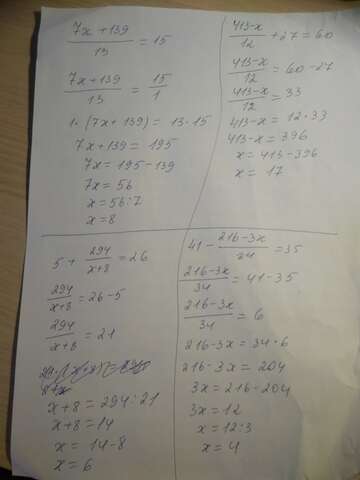 (7x+139)/13 = 15
(7x+139)/13 = 15/1
1·(7x+139) = 13·15
7x+139 = 195
7x = 195-139
7x = 56
x = 56:7
x = 8
(413-x)/12 + 27 = 60
(413-x)/12 = 60-27
(413-x)/12 = 33
413-x = 12·33
413-x = 396
x = 413-396
x = 17
5 + 294/(x+8) = 26
294/(x+8) = 26-5
294/(x+8) = 21
x+8 = 294:21
x+8 = 14
x = 14-8
x = 6
41 - (216-3x)/34 = 35
(216-3x)/34 = 41-35
(216-3x)/34 = 6
216-3x = 34·6
216-3x = 204
3x = 216-204
3x = 12
x = 12:3
x = 4